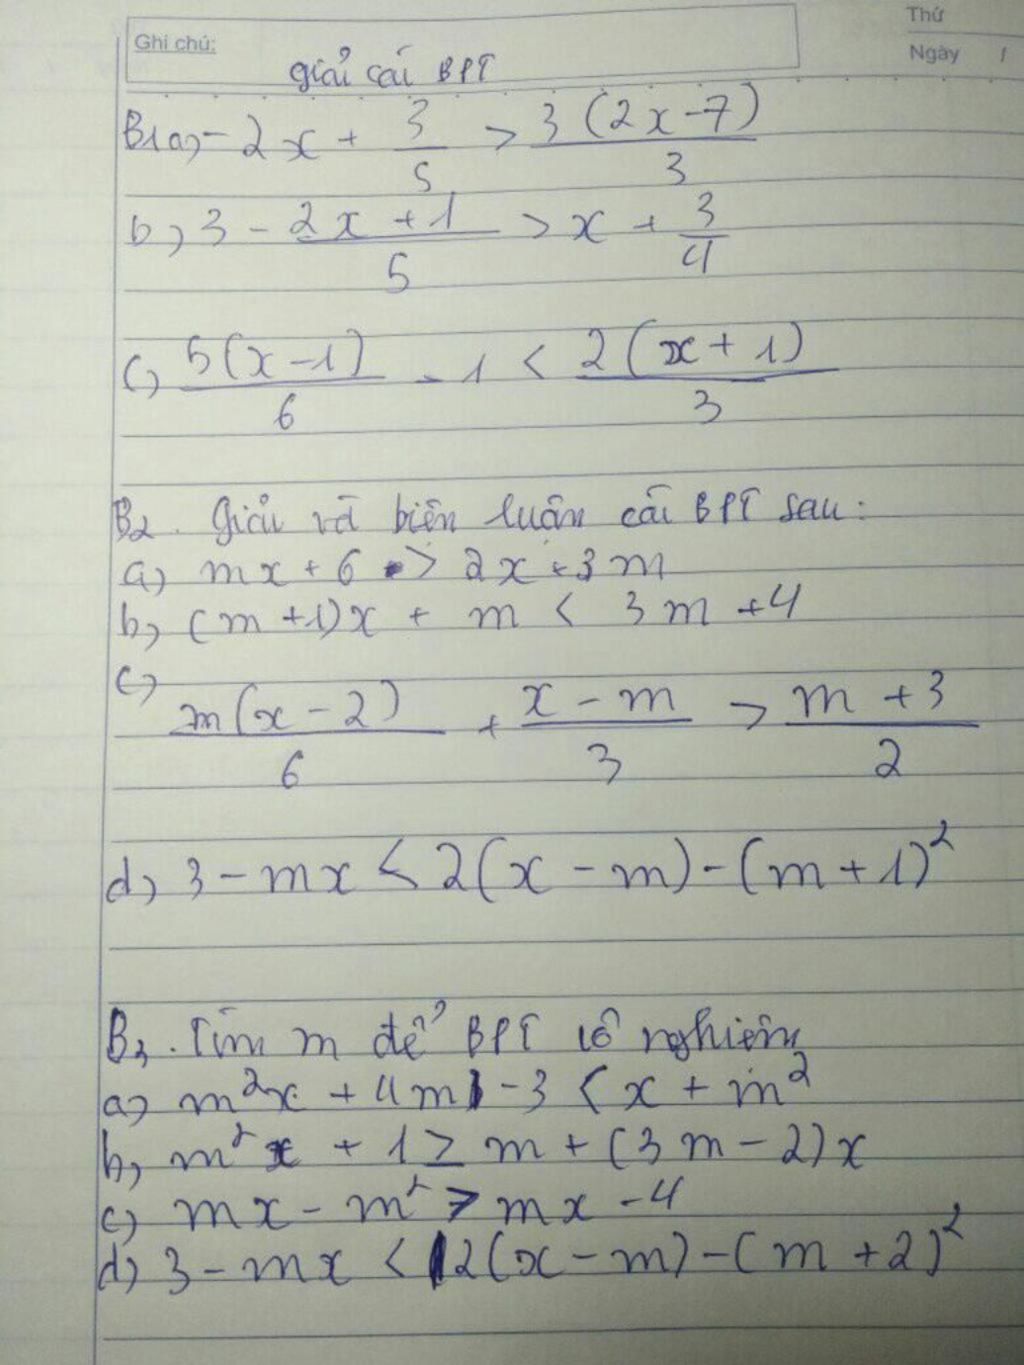 Thứ
Ghi chú:
Ngày /
giải các BPT
B1a, -2x + 3/5 > 3(2x-7)/3
b, 3 - 2x+1/5 > x + 3/4
c, 5(x-1)/6 - 1 < 2(x+1)/3
B2. Giải và biện luận các BPT sau:
a, mx + 6 > 2x + 3m
b, (m+1)x + m < 3m + 4
c, m(x-2)/6 + x-m/3 > m+3/2
d, 3 - mx < 2(x-m) - (m+1)²
B3. Tìm m để BPT vô nghiệm
a, m²x + 4m - 3 < x + m²
b, m²x + 1 ≥ m + (3m-2)x
c, mx - m² > mx - 4
d, 3 - mx < 2(x-m) - (m+2)²